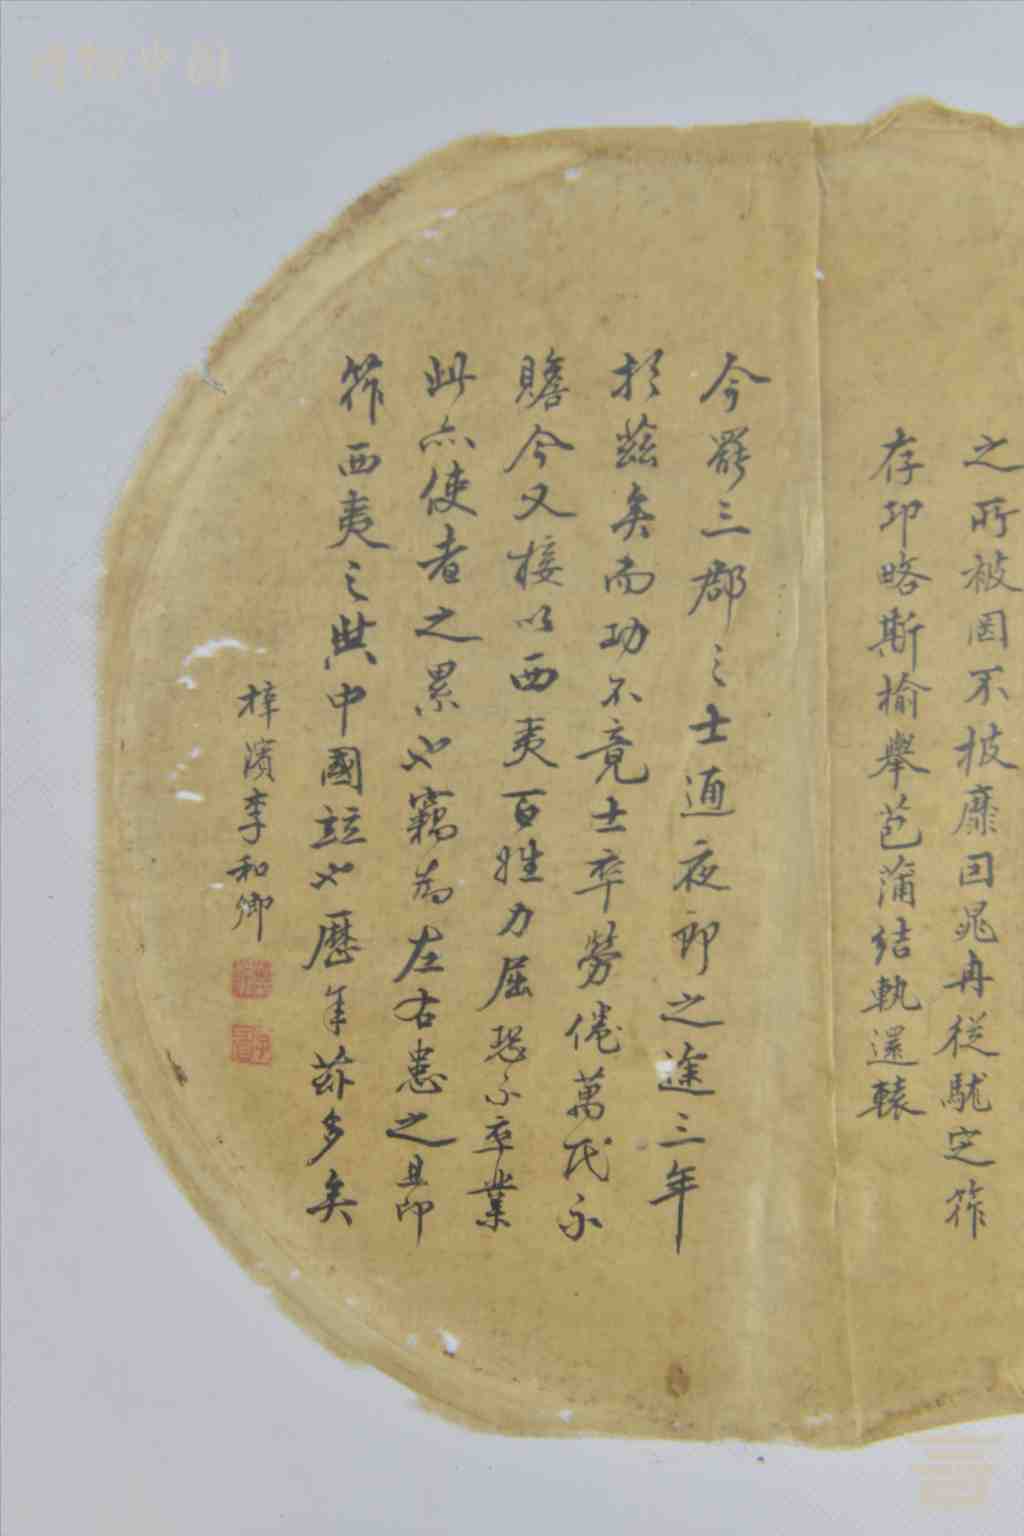 之所被罔不披靡因冄冉從駹定筰
存卭略斯榆舉苞蒲結軌還轅
今罷三郡之士通夜郎之途三年
於茲矣而功不竟士卒勞倦萬民不
贍今又接以西夷百姓力屈恐不卒業
此亦使者之累也竊為左右患之且卭
筰西夷之與中國並也歷年茲多矣
梓濱李和卿